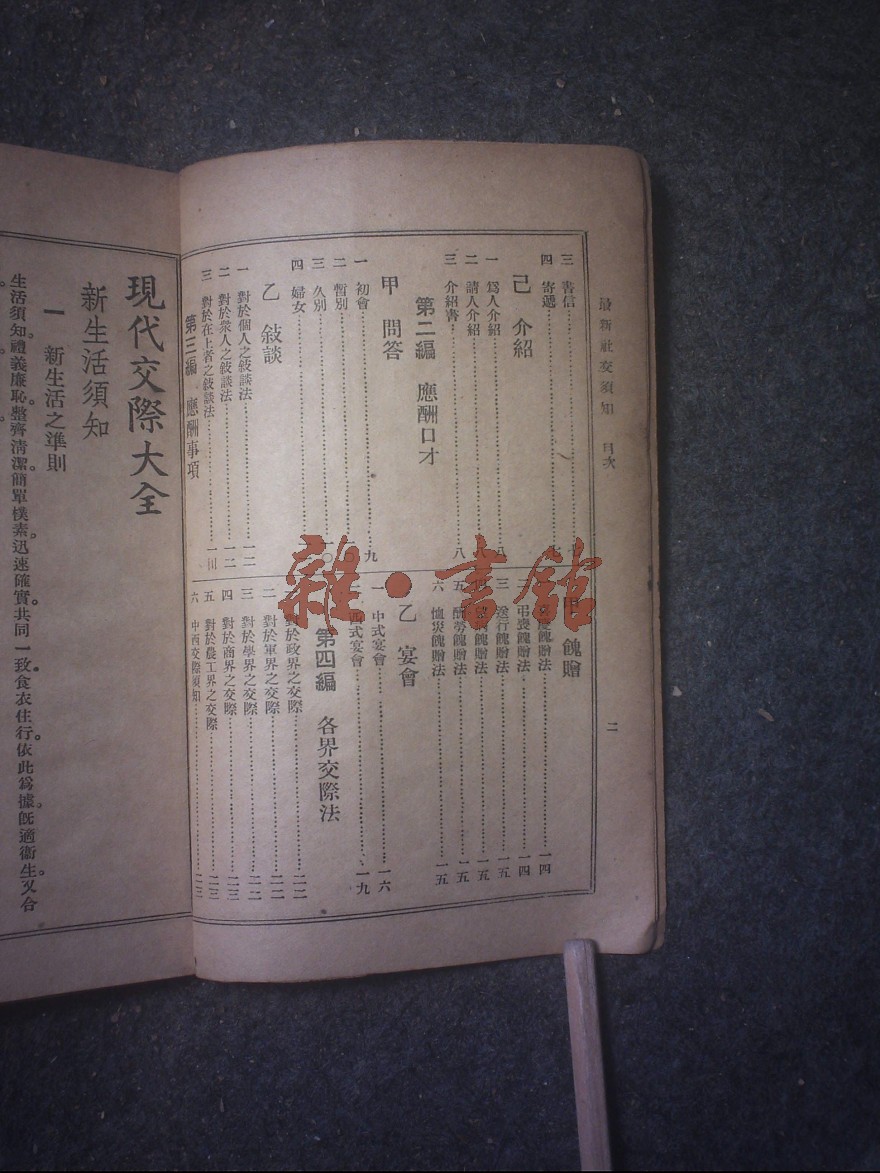 最新社交須知 目次
二
三 書信
四 寄遞
己 介紹
一 爲人介紹……八
二 請人介紹……八
三 介紹書……八
第二編 應酬口才
甲 問答
一 初會……九
二 暫別
三 久別……一〇
四 婦女
乙 敍談
一 對於個人之敍談法……一二
二 對於衆人之敍談法……一二
三 對於在上者之敍談法
第三編 應酬事項
甲 餽贈
餽贈法……一四
弔喪餽贈法……一四
三 送行餽贈法……一五
餽贈法……一五
五 酬勞餽贈法……一五
六 恤災餽贈法……一五
乙 宴會
一 中式宴會……一六
二 西式宴會……一九
第四編 各界交際法
一 對於政界之交際……二二
二 對於軍界之交際……二二
三 對於學界之交際……二二
四 對於商界之交際……二三
五 對於農工界之交際……二三
六 中西交際須知……二三
雜·書館
現代交際大全
新生活須知
一 新生活之準則
生活須知禮義廉恥。整齊清潔。簡單樸素。迅速確實。共同一致。食衣住行。依此爲據。旣適衞生。又合